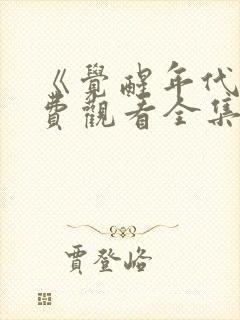 《覺醒年代
費觀看全集
賈登峪